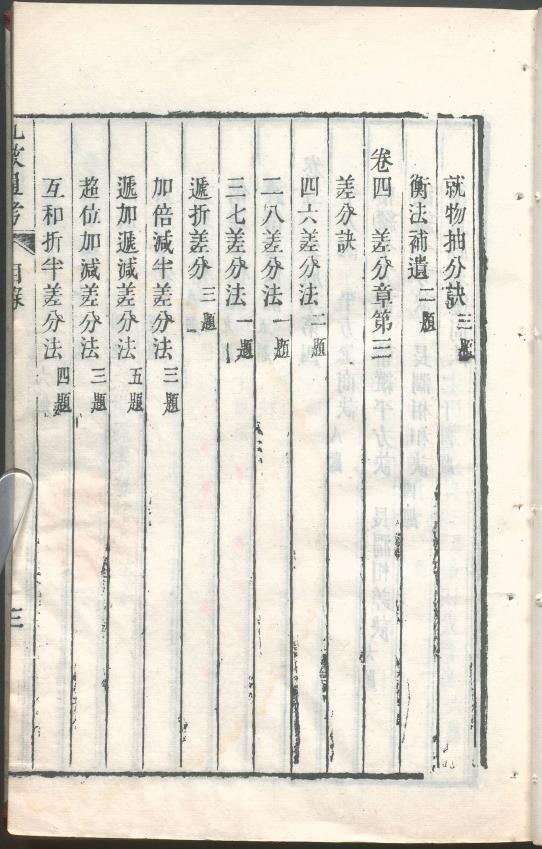 就物抽分訣 三題
衡法補遺 二題
卷四 差分章第三
差分訣
四六差分法 二題
二八差分法 一題
三七差分法 一題
遞折差分 三題
加倍減半差分法 三題
遞加遞減差分法 五題
超位加減差分法 三題
互和折半差分法 四題
三